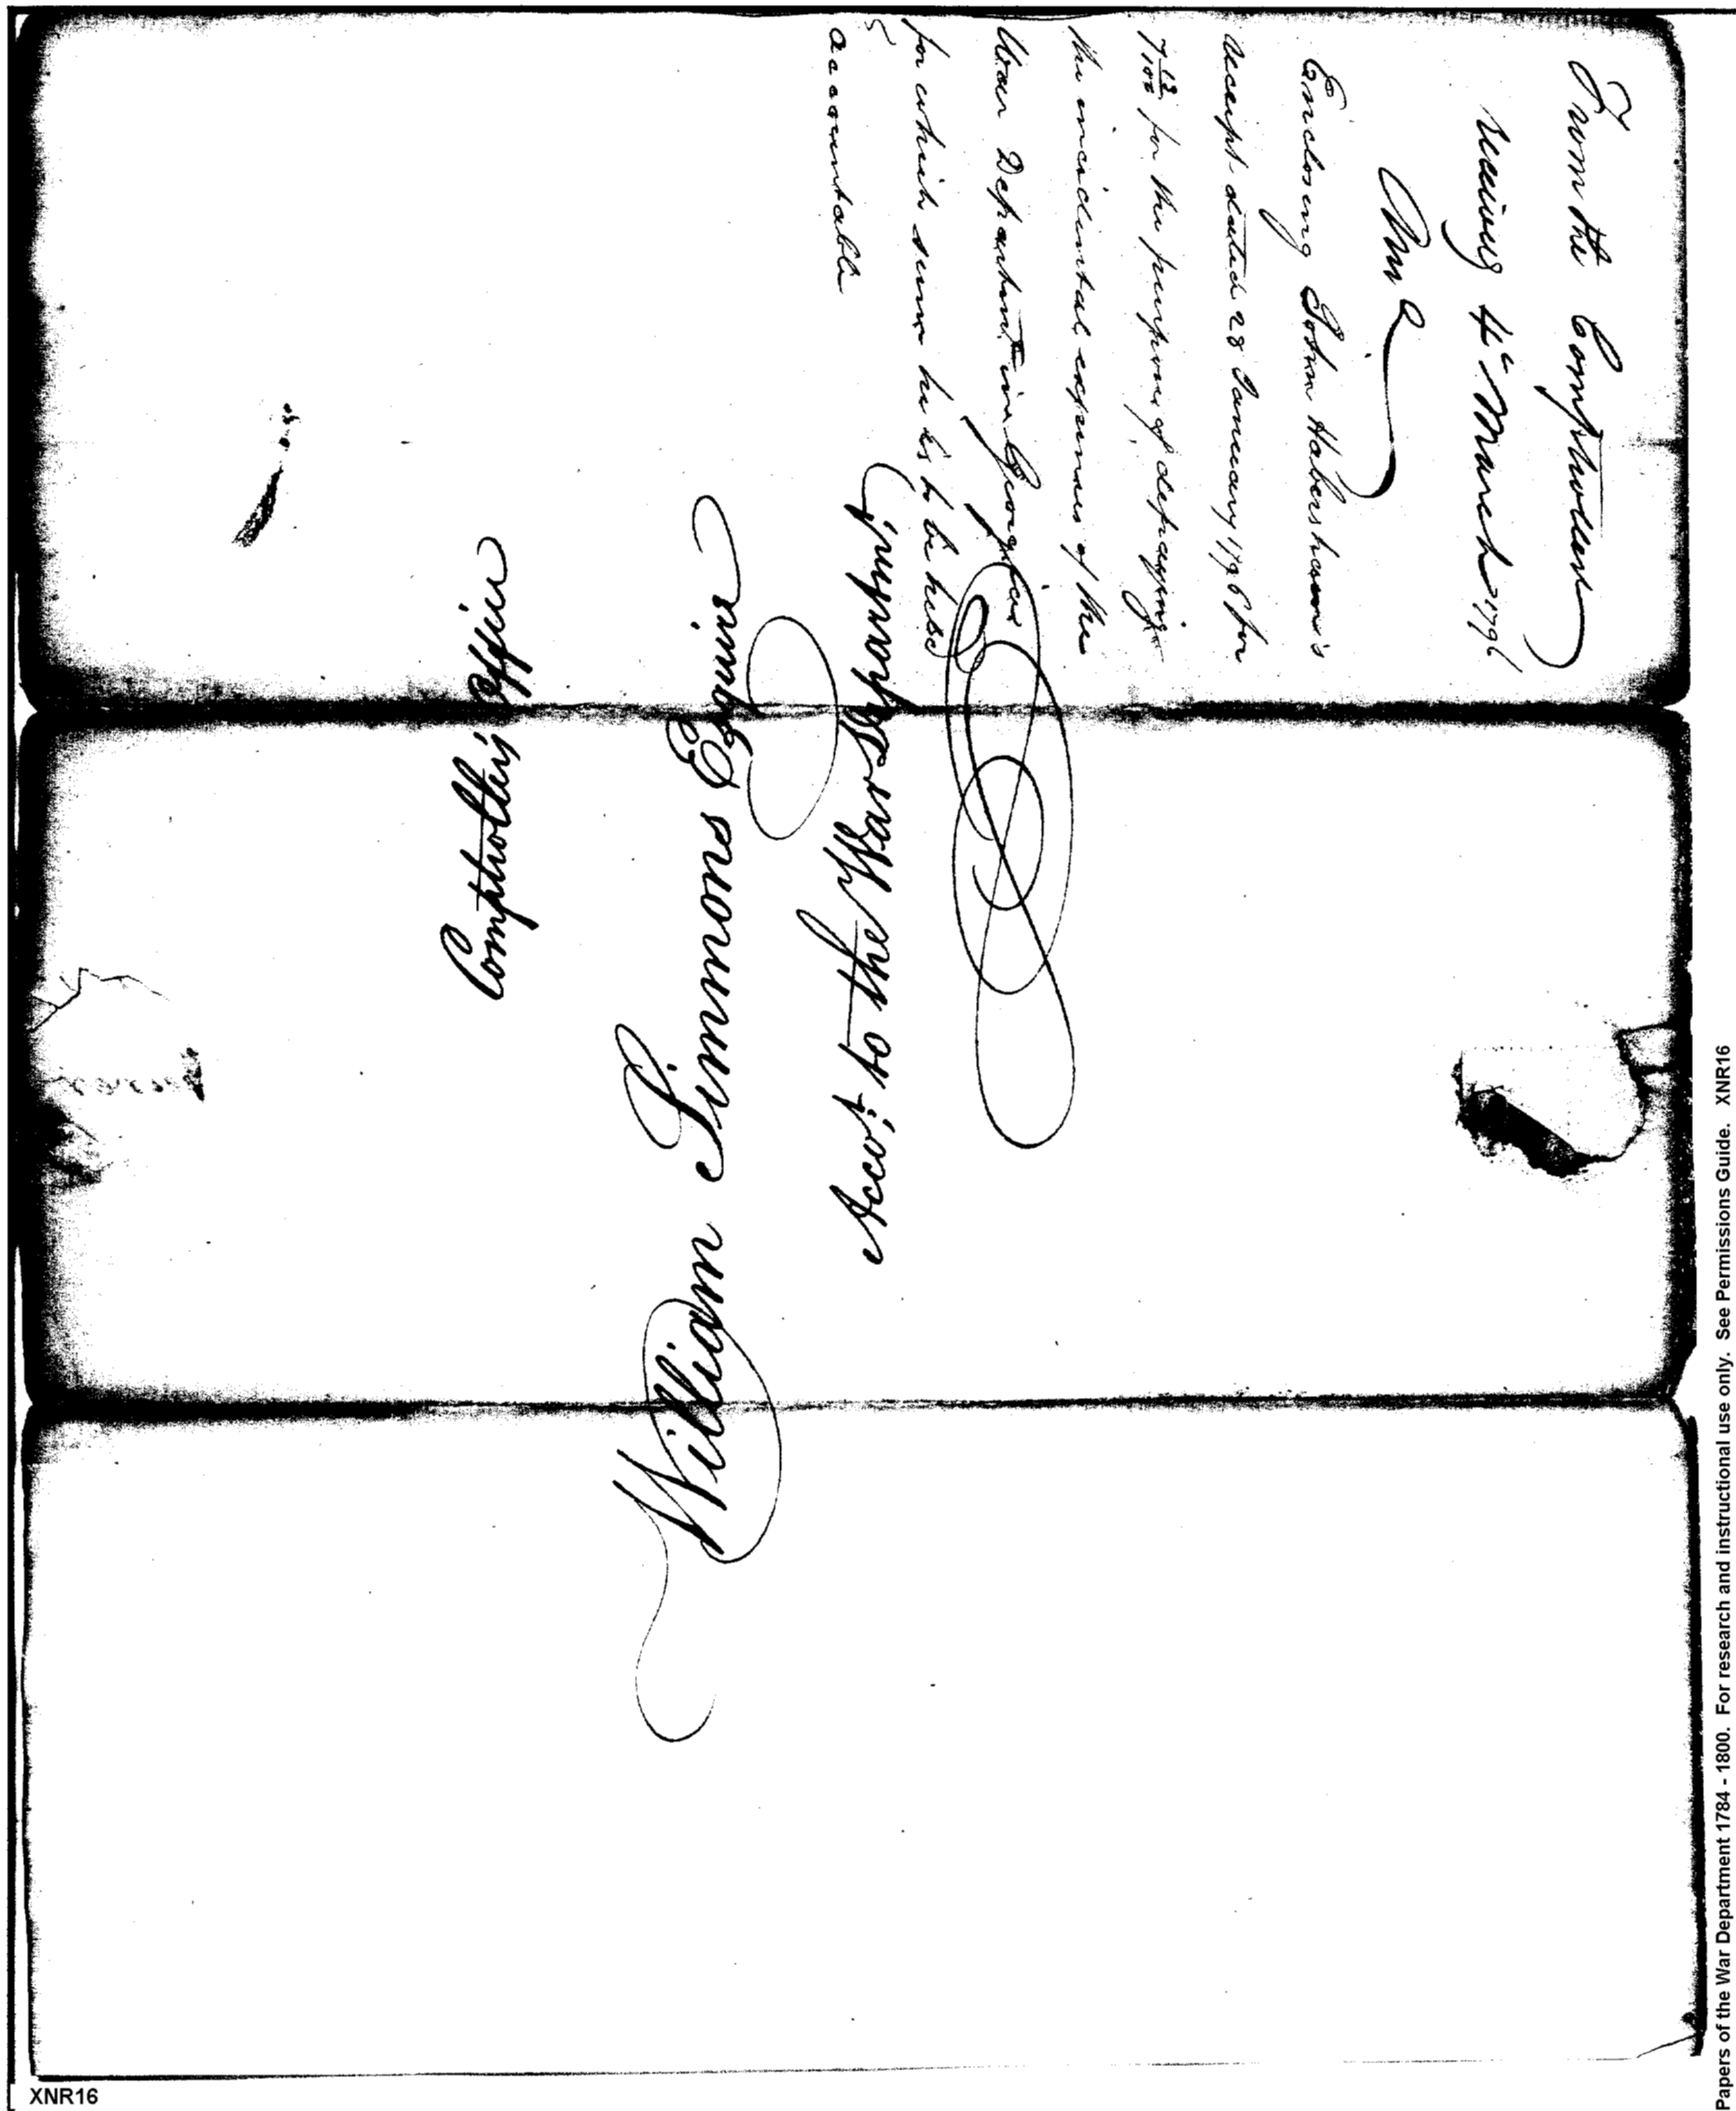 From the Comptroller
receiv'g 4th March 1796
Enclosing John Habersham's
receipt dated 28 January 1796 for
7 12/100 for the purpose of defraying
the incidental expenses of the
War Department in Georgia
for which sum he is to be held
accountable
5
Comptroller's Office
William Simmons Esquire
Accot. to the War Departmt.
XNR16
Papers of the War Department 1784 - 1800. For research and instructional use only. See Permissions Guide. XNR16